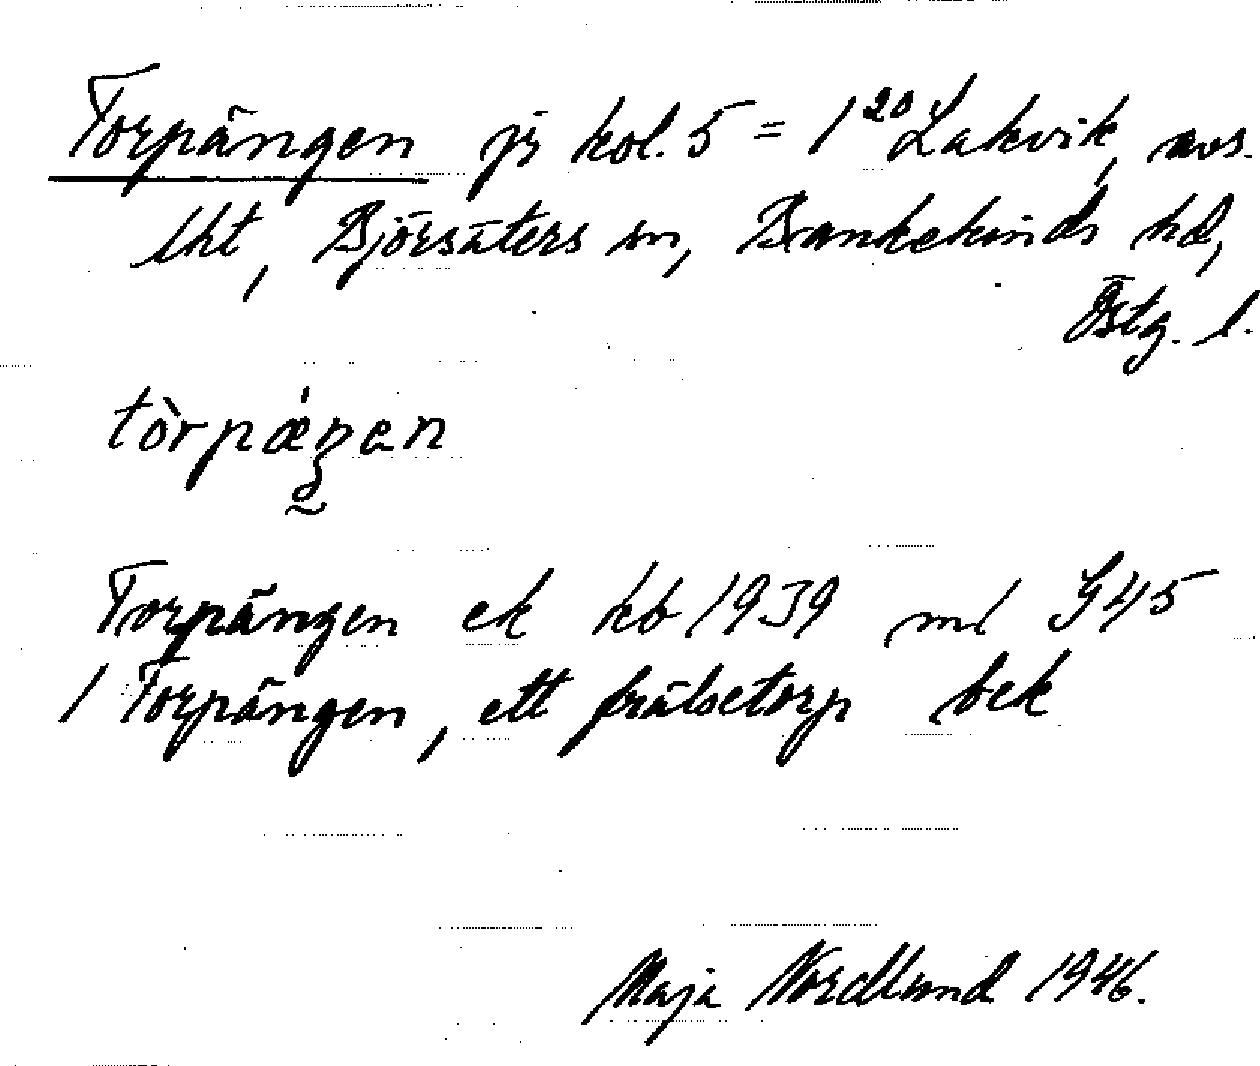 Torpängen jr kol. 5 = 1²⁰ Lakvik, avs.
lht, Björsäters sn, Bankekinds hd,
Östg. l.
tòrpæ̀ŋen
Torpängen ek kb 1939 ml G45
1 Torpängen, ett frälsetorp bek
Maja Nordlund 1946.